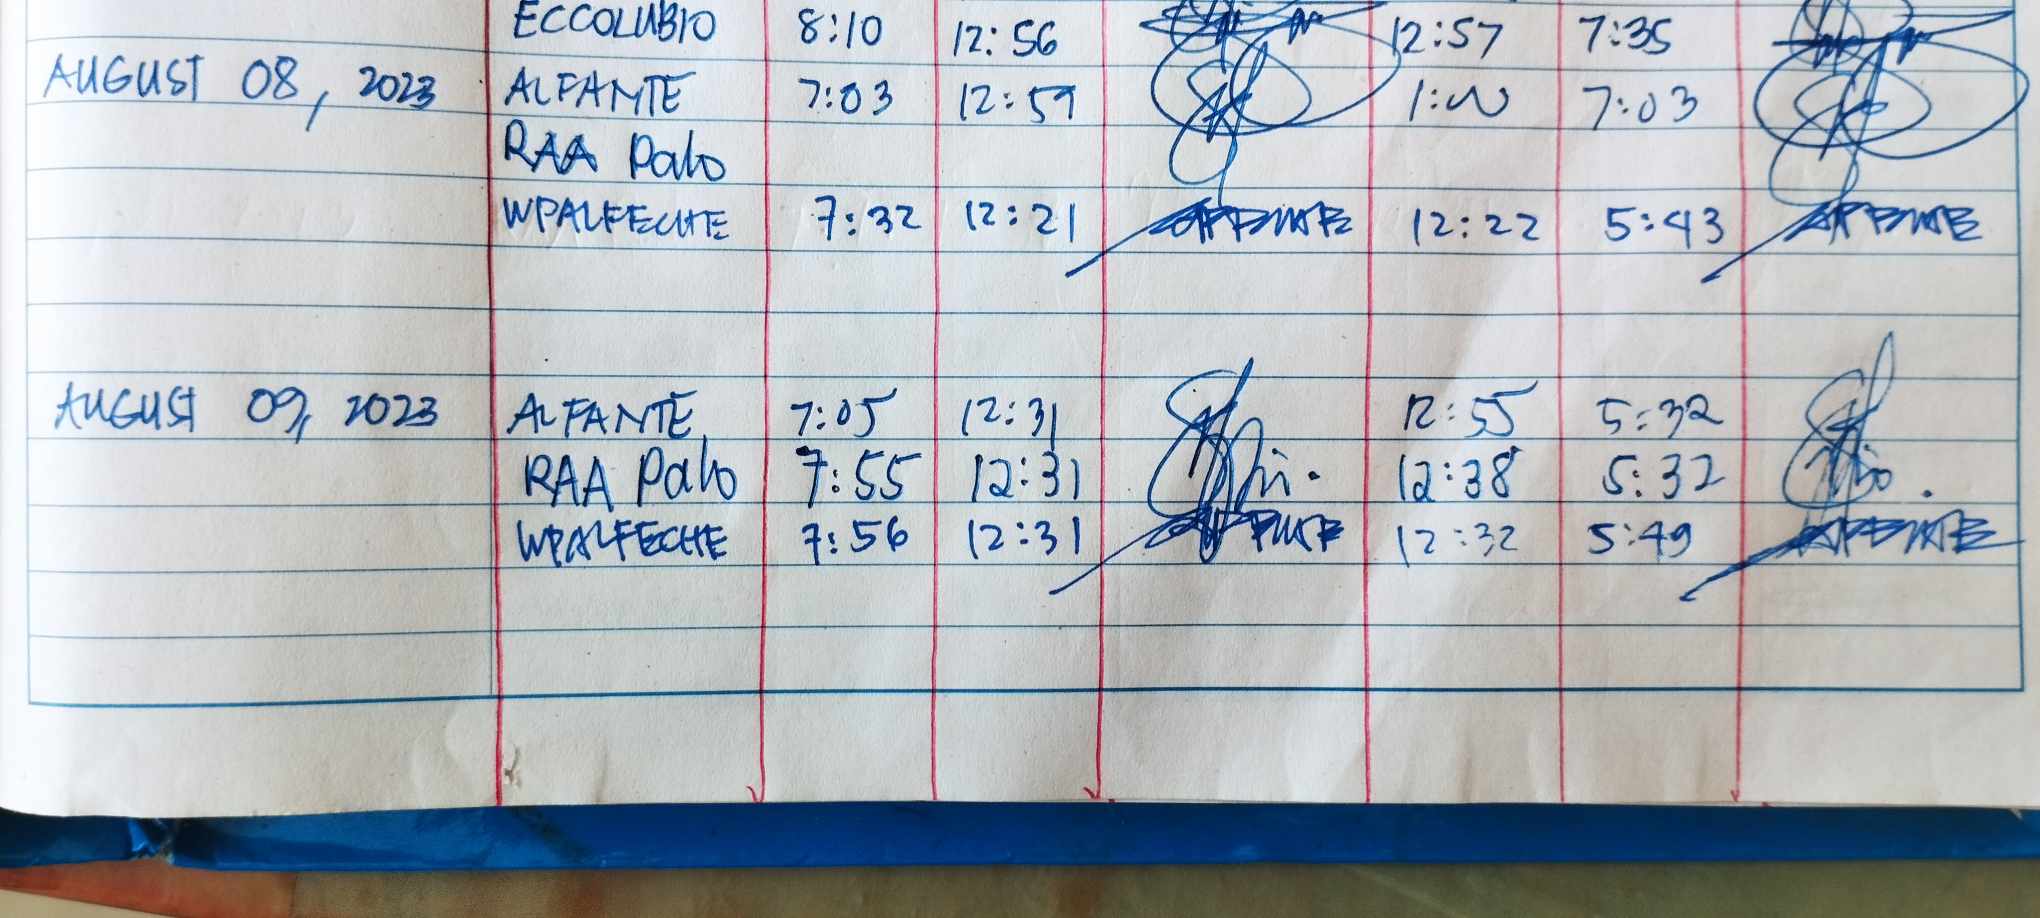 ECCOLUBIO 8:10 12:56 12:57 7:35
AUGUST 08, 2023 ALFANTE 7:03 12:59 1:00 7:03
RAA Palo
WPALFECHE 7:32 12:21 12:22 5:43
AUGUST 09, 2023 ALFANTE 7:05 12:31 12:55 5:32
RAA Palo 7:55 12:31 12:38 5:32
WPALFECHE 7:56 12:31 12:32 5:49